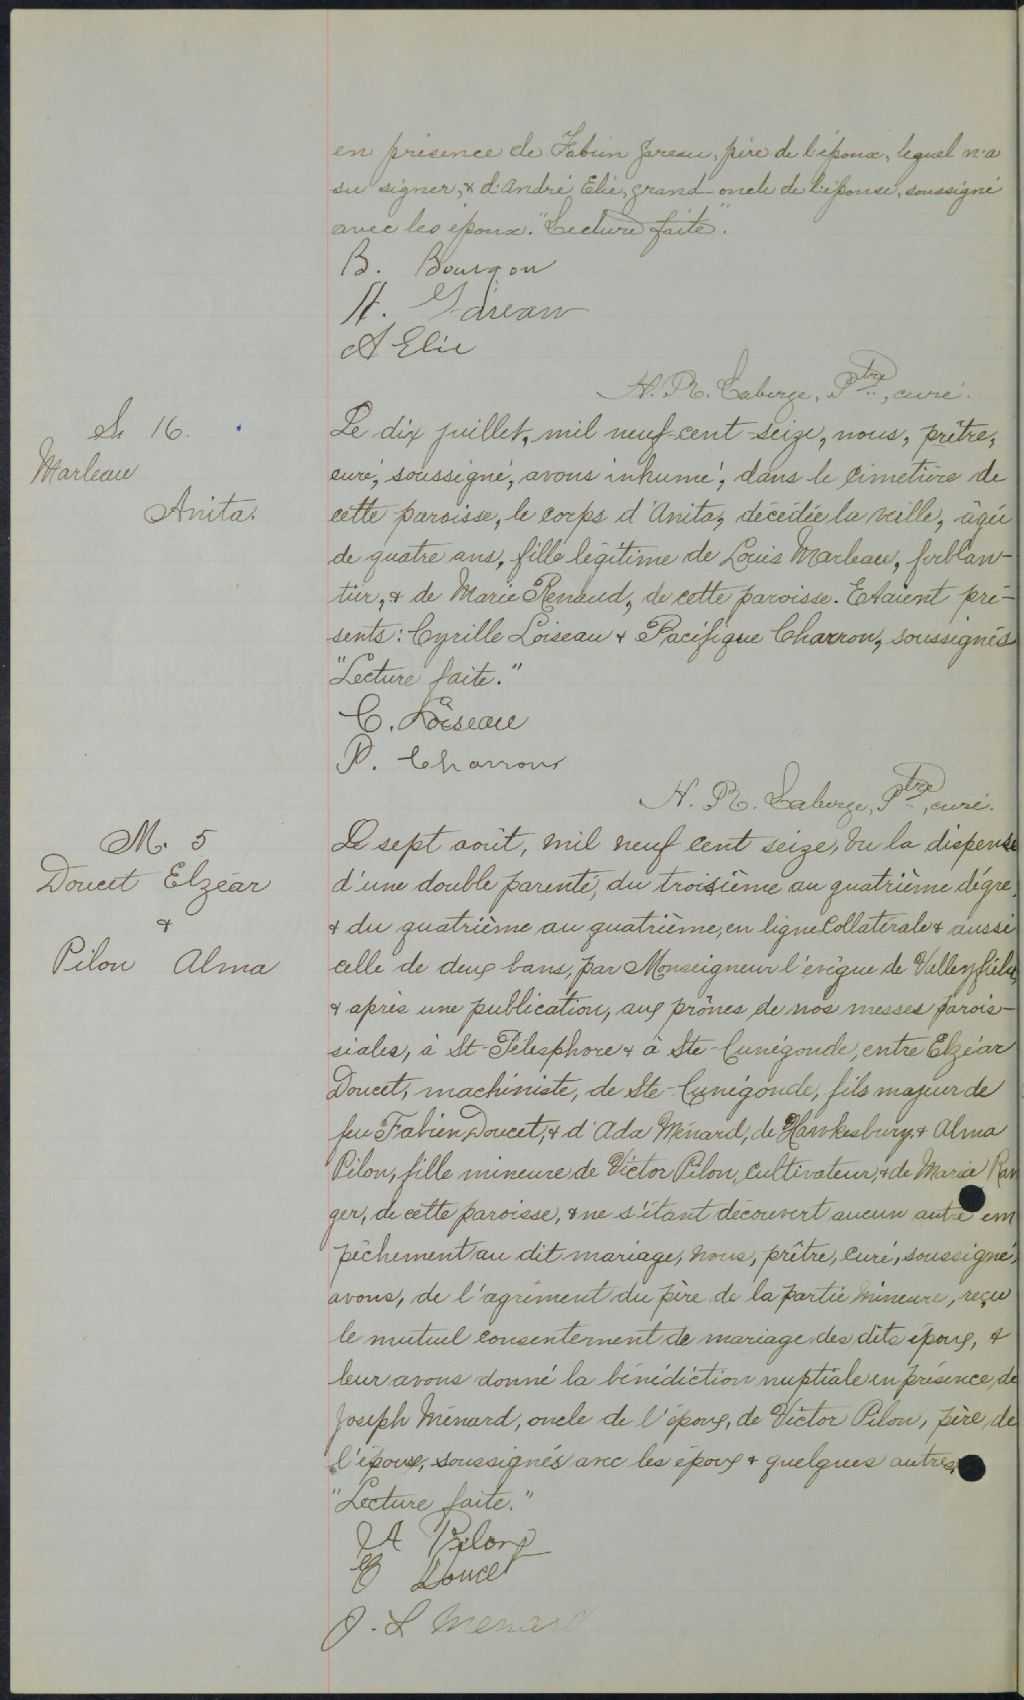 en présence de Fabien Gareau, père de l'époux, lequel n'a
su signer, & d'André Elie, grand-oncle de l'épouse, soussigné
avec les époux. "Lecture faite".
B. Bourgon
H. Gareau
A Elie
H. R. Laberge, Ptre, curé.
S. 16.
Marleau
Anita.
Le dix juillet, mil neuf-cent-seize, nous, prêtre,
curé, soussigné, avons inhumé, dans le cimetière de
cette paroisse, le corps d'Anita, décédée la veille, âgée
de quatre ans, fille légitime de Louis Marleau, ferblan-
tier, & de Marie Renaud, de cette paroisse. Etaient pré-
sents: Cyrille Loiseau & Pacifique Charron, soussignés
"Lecture faite."
C. Loiseau
P. Charron
H. R. Laberge, Ptre, curé.
M. 5
Doucet Elzéar
&
Pilon Alma
Le sept août, mil neuf cent seize, vu la dispense
d'une double parenté, du troisième au quatrième dégré,
& du quatrième au quatrième, en ligne collatérale & aussi
celle de deux bans, par Monseigneur l'évêque de Valleyfield,
& après une publication, aux prônes de nos messes parois-
siales, à St-Télesphore & à Ste-Cunégonde, entre Elzéar
Doucet, machiniste, de Ste-Cunégonde, fils majeur de
feu Fabien Doucet, & d'Ada Ménard, de Hawkesbury. & Alma
Pilon, fille mineure de Victor Pilon, cultivateur, & de Maria Ran
ger, de cette paroisse, & ne s'étant découvert aucun autre em
pêchement au dit mariage, nous, prêtre, curé, soussigné,
avons, de l'agrément du père de la partie mineure, reçu
le mutuel consentement de mariage des dits époux, &
leur avons donné la bénédiction nuptiale en présence de
Joseph Ménard, oncle de l'époux, de Victor Pilon, père de
l'épouse, soussignés avec les époux & quelques autres.
"Lecture faite."
A Pilon
E Doucet
J. L Menard